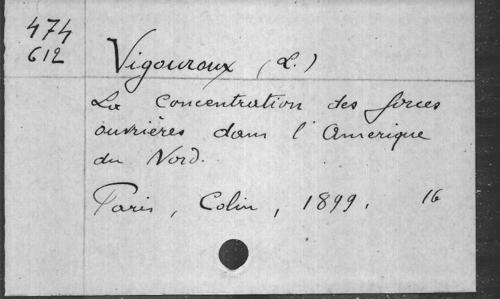 474
612
Vigouroux (L.)
La Concentration des forces
ouvrières dans l'Amérique
du Nord.
Paris, Colin, 1899. 16